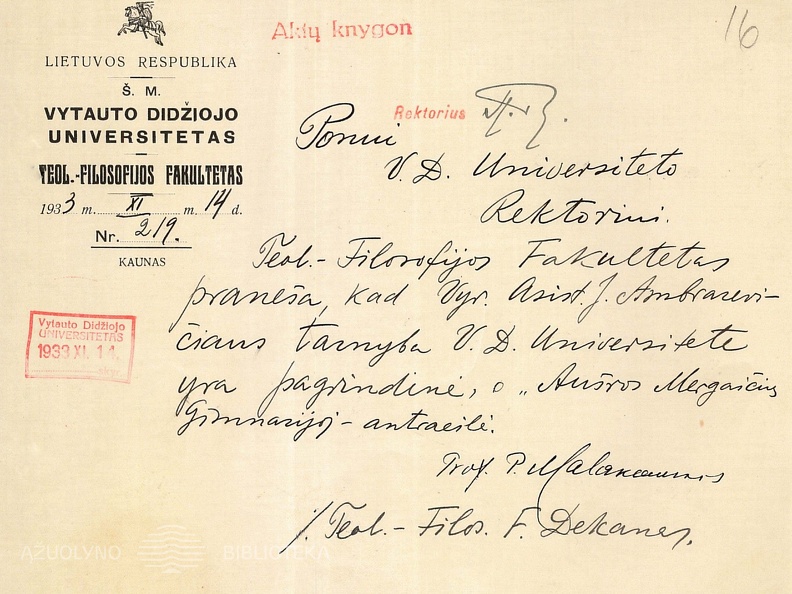 16
Aktų knygon
LIETUVOS RESPUBLIKA
Š. M.
VYTAUTO DIDŽIOJO
UNIVERSITETAS
TEOL.-FILOSOFIJOS FAKULTETAS
1933 m. XI m. 14 d.
Nr. 219.
KAUNAS
Rektorius
Ponui
V. D. Universiteto
Rektoriui.
Teol.- Filosofijos Fakultetas
praneša, kad Vyr. Asist. J. Ambrazevi-
čiaus tarnyba V. D. Universitete
yra pagrindinė, o „Aušros Mergaičių
Gimnazijoj - antraeilė.
Vytauto Didžiojo
UNIVERSITETAS
1933 XI. 14.
Prof. P. Malakauskis
Teol.- Filos. F. Dekanas.
AŽUOLYNO BIBLIOTEKA